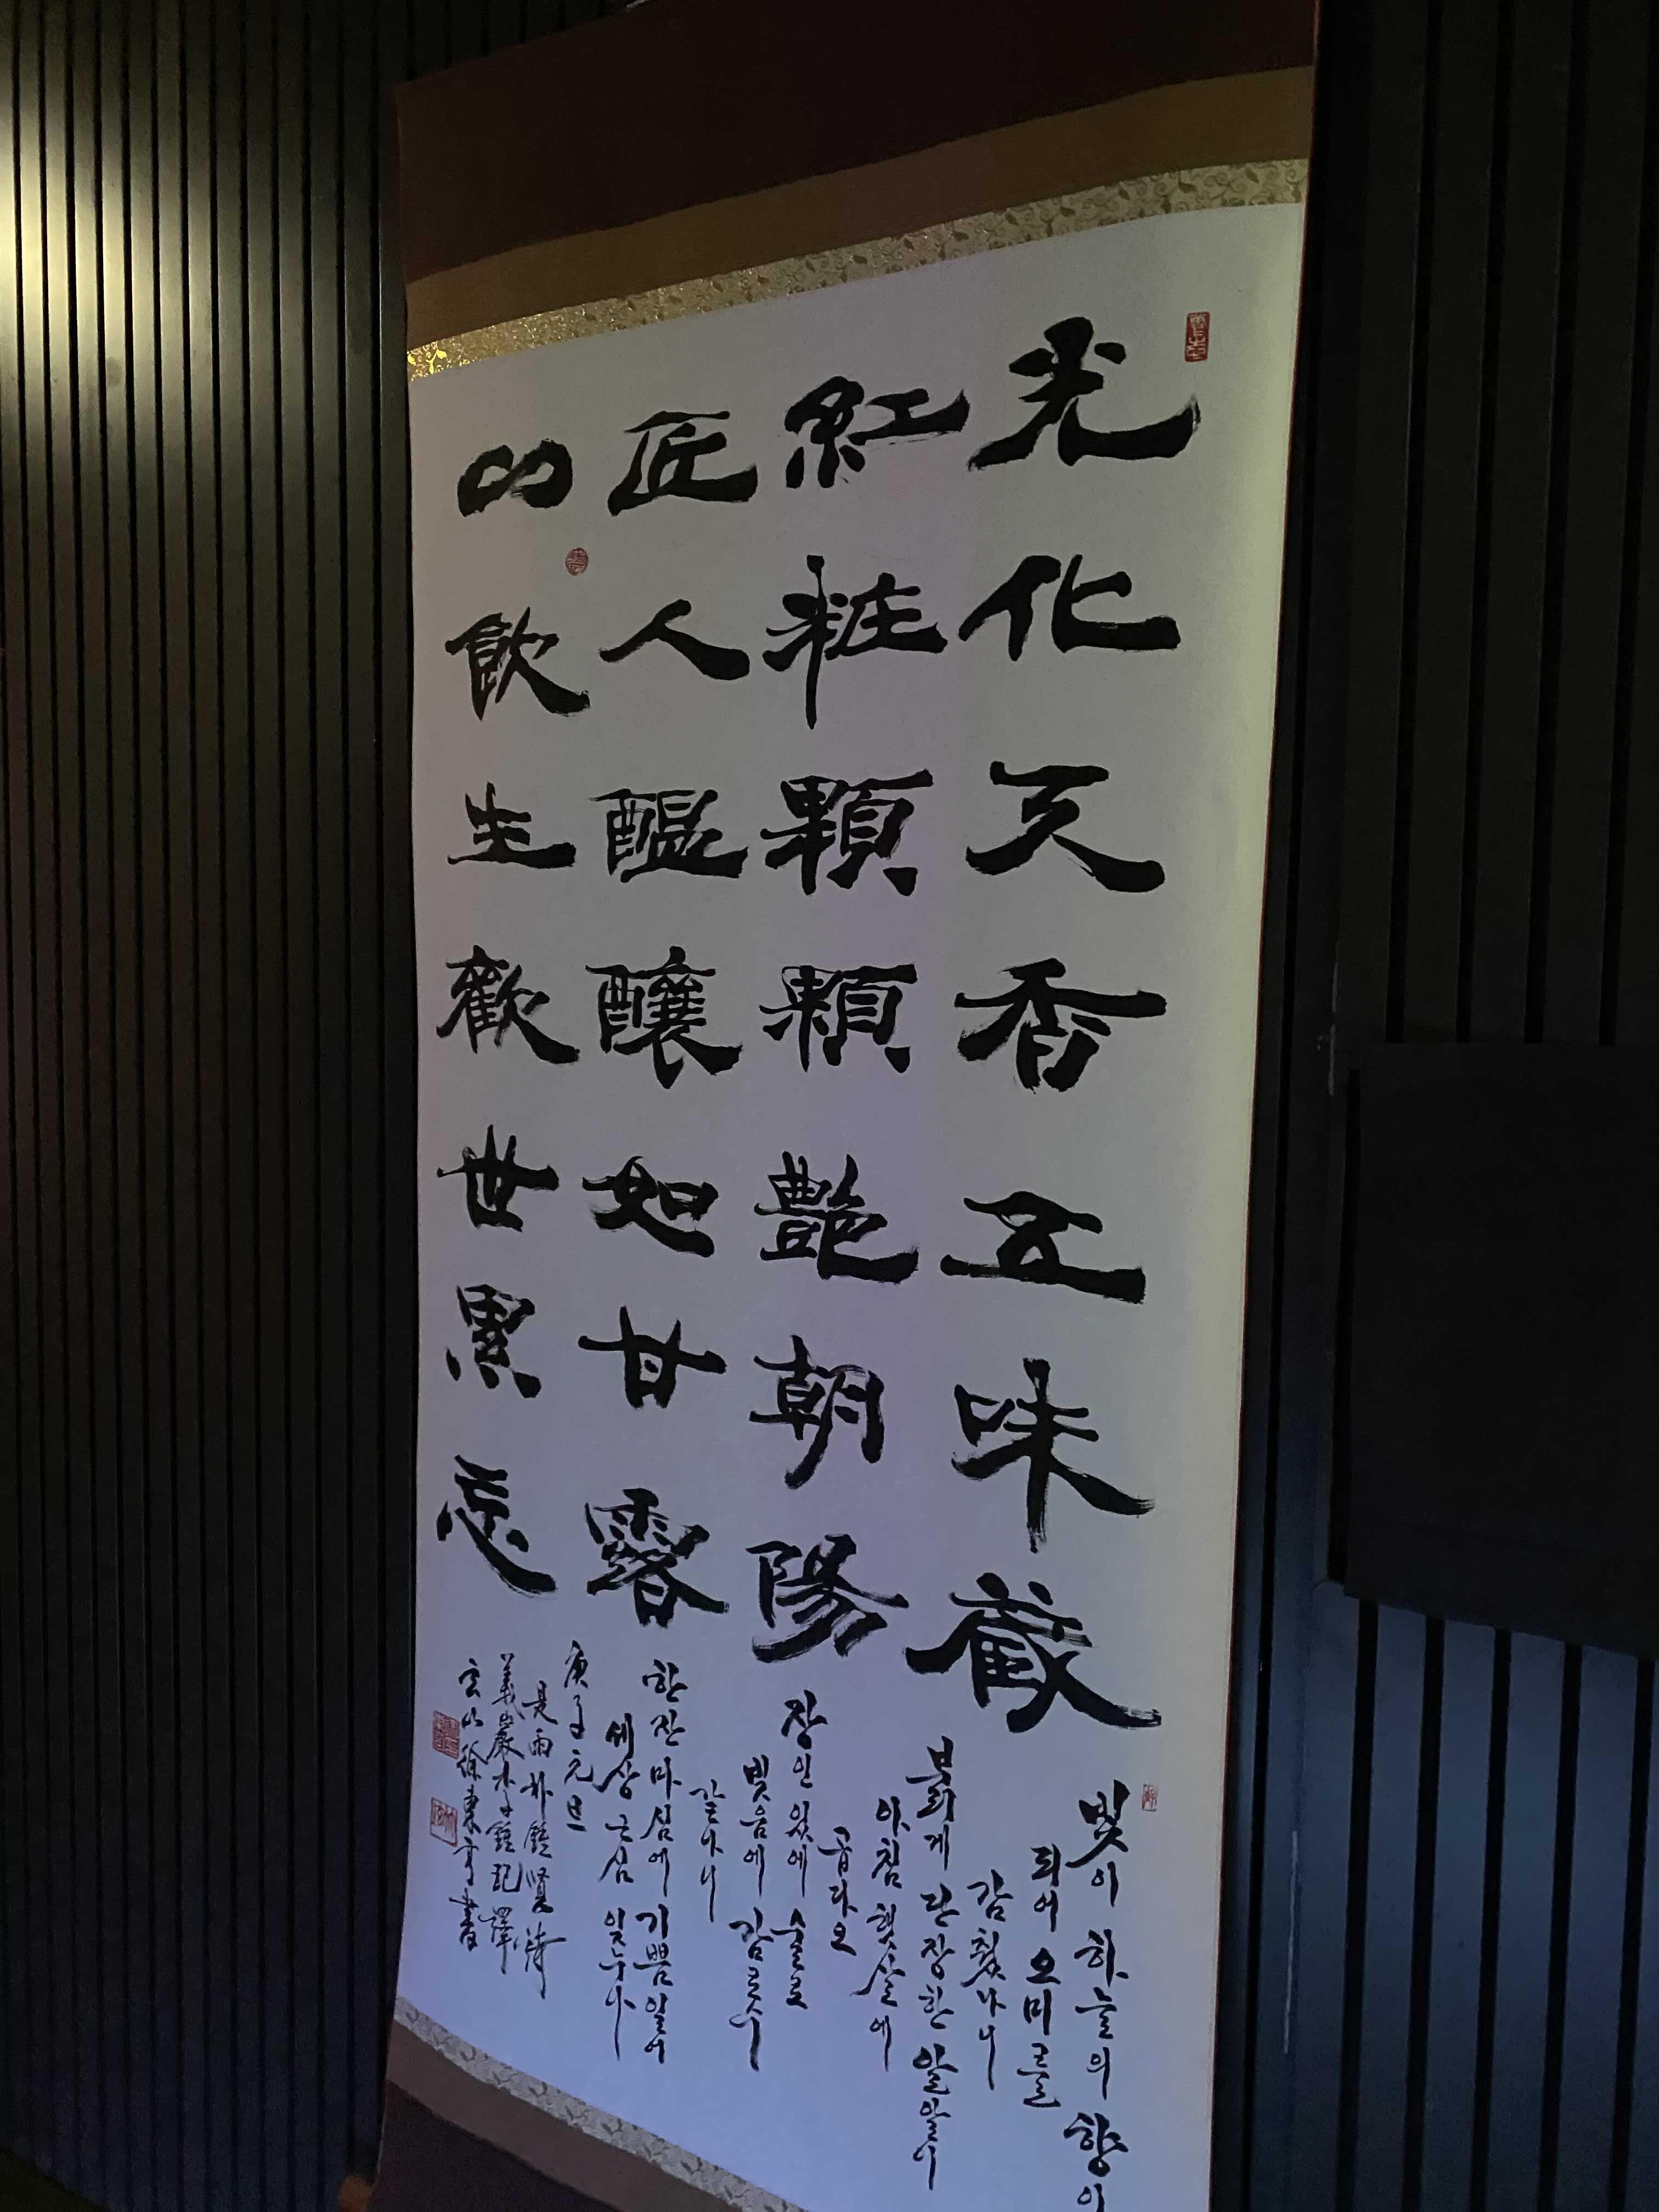 光化天香五味藏
紅粧顆顆艶朝陽
匠人醞釀如甘露
一飮生歡世累忘
빛이 하늘의 향이
되어 오미를
감췄나니
붉게 단장한 알알이
아침 햇살에
곱다오
장인 있에 술로
빚음에 감로수
같나니
한 잔 마심에 기쁨 일어
세상 근심 잊누나
庚子元旦
是雨 鍾賢 詩
義巖 鍾 譯
玄山 徐東亨 書